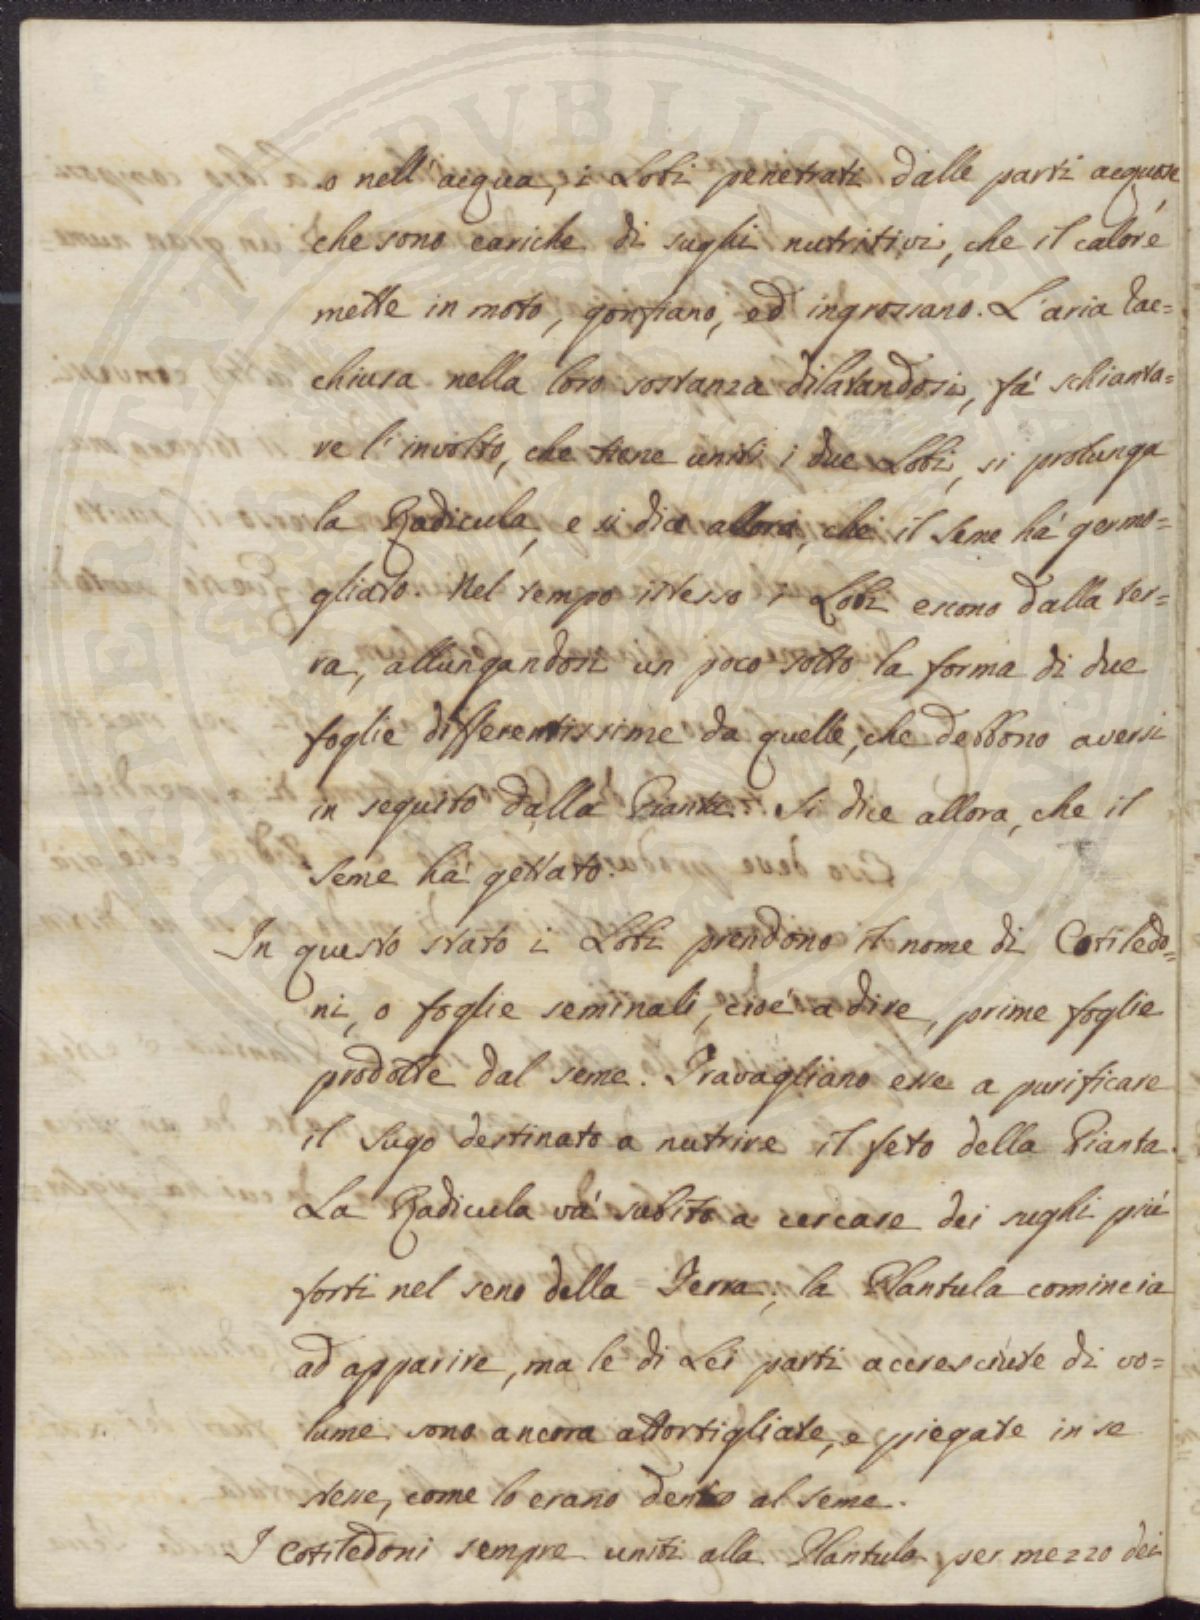 o nell' acqua, i Lobi penetrati dalle parti acquose
che sono cariche di sughi nutritivi, che il calore
mette in moto, gonfiano, ed ingrossano. L'aria rac=
chiusa nella loro sostanza dilatandosi, fà schianta=
re l'involto, che tiene uniti i due Lobi, si prolunga
la Radicula, e si dice allora, che il seme hà germo=
gliato. Nel tempo istesso i Lobi escono dalla ter=
ra, allungandosi un poco sotto la forma di due
foglie differentissime da quelle, che debbono aversi
in seguito dalla Pianta. Si dice allora, che il
seme hà gettato.
In questo stato i Lobi prendono il nome di Cotiledo=
ni, o foglie seminali, cioè a dire, prime foglie
prodotte dal seme. Travagliano esse a purificare
il sugo destinato a nutrire il feto della Pianta.
La Radicula và subito a cercare dei sughi più
forti nel seno della Terra; la Plantula comincia
ad apparire, ma le di Lei parti accresciute di vo=
lume sono ancora attortigliate, e piegate in se
stesse, come lo erano dentro al seme.
I Cotiledoni sempre uniti alla Plantula per mezzo dei